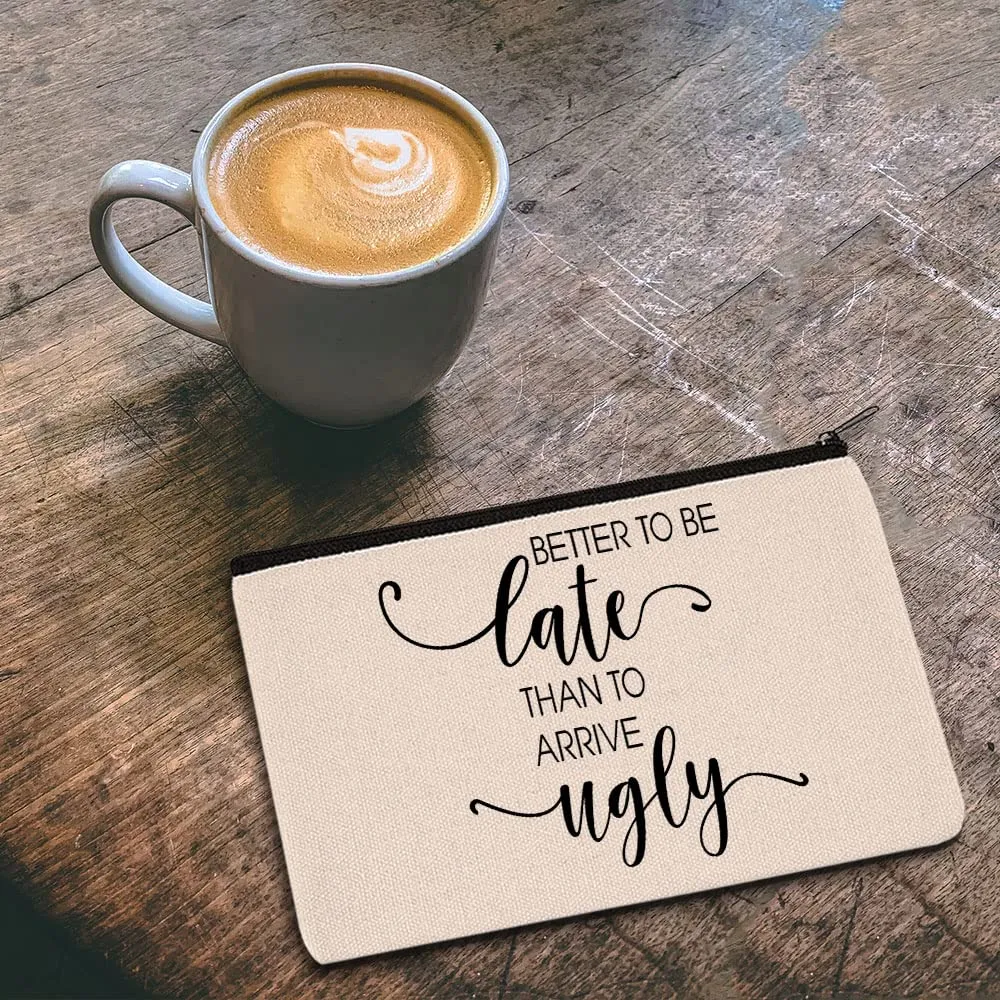 BETTER TO BE
late
THAN TO
ARRIVE
ugly